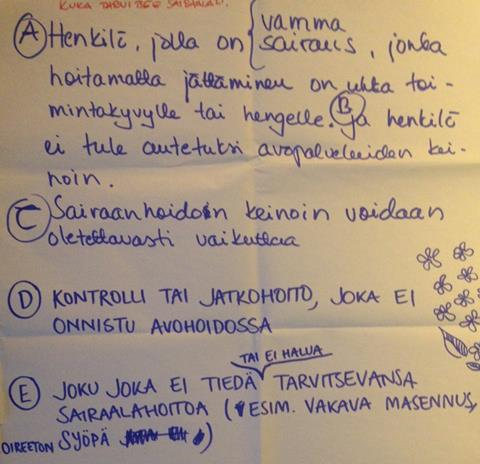 KUKA TARVITSEE SAIRAALAA?
(A) Henkilö, jolla on { vamma
sairaus, jonka
hoitamatta jättäminen on uhka toi-
mintakyvylle tai hengelle. (B) Ja henkilö
ei tule autetuksi avopalveluiden kei-
noin.
(C) Sairaanhoidon keinoin voidaan
oletettavasti vaikuttaa
(D) KONTROLLI TAI JATKOHOITO, JOKA EI
ONNISTU AVOHOIDOSSA
TAI EI HALUA
(E) JOKU JOKA EI TIEDÄ TARVITSEVANSA
SAIRAALAHOITOA (ESIM. VAKAVA MASENNUS,
OIREETON SYÖPÄ)